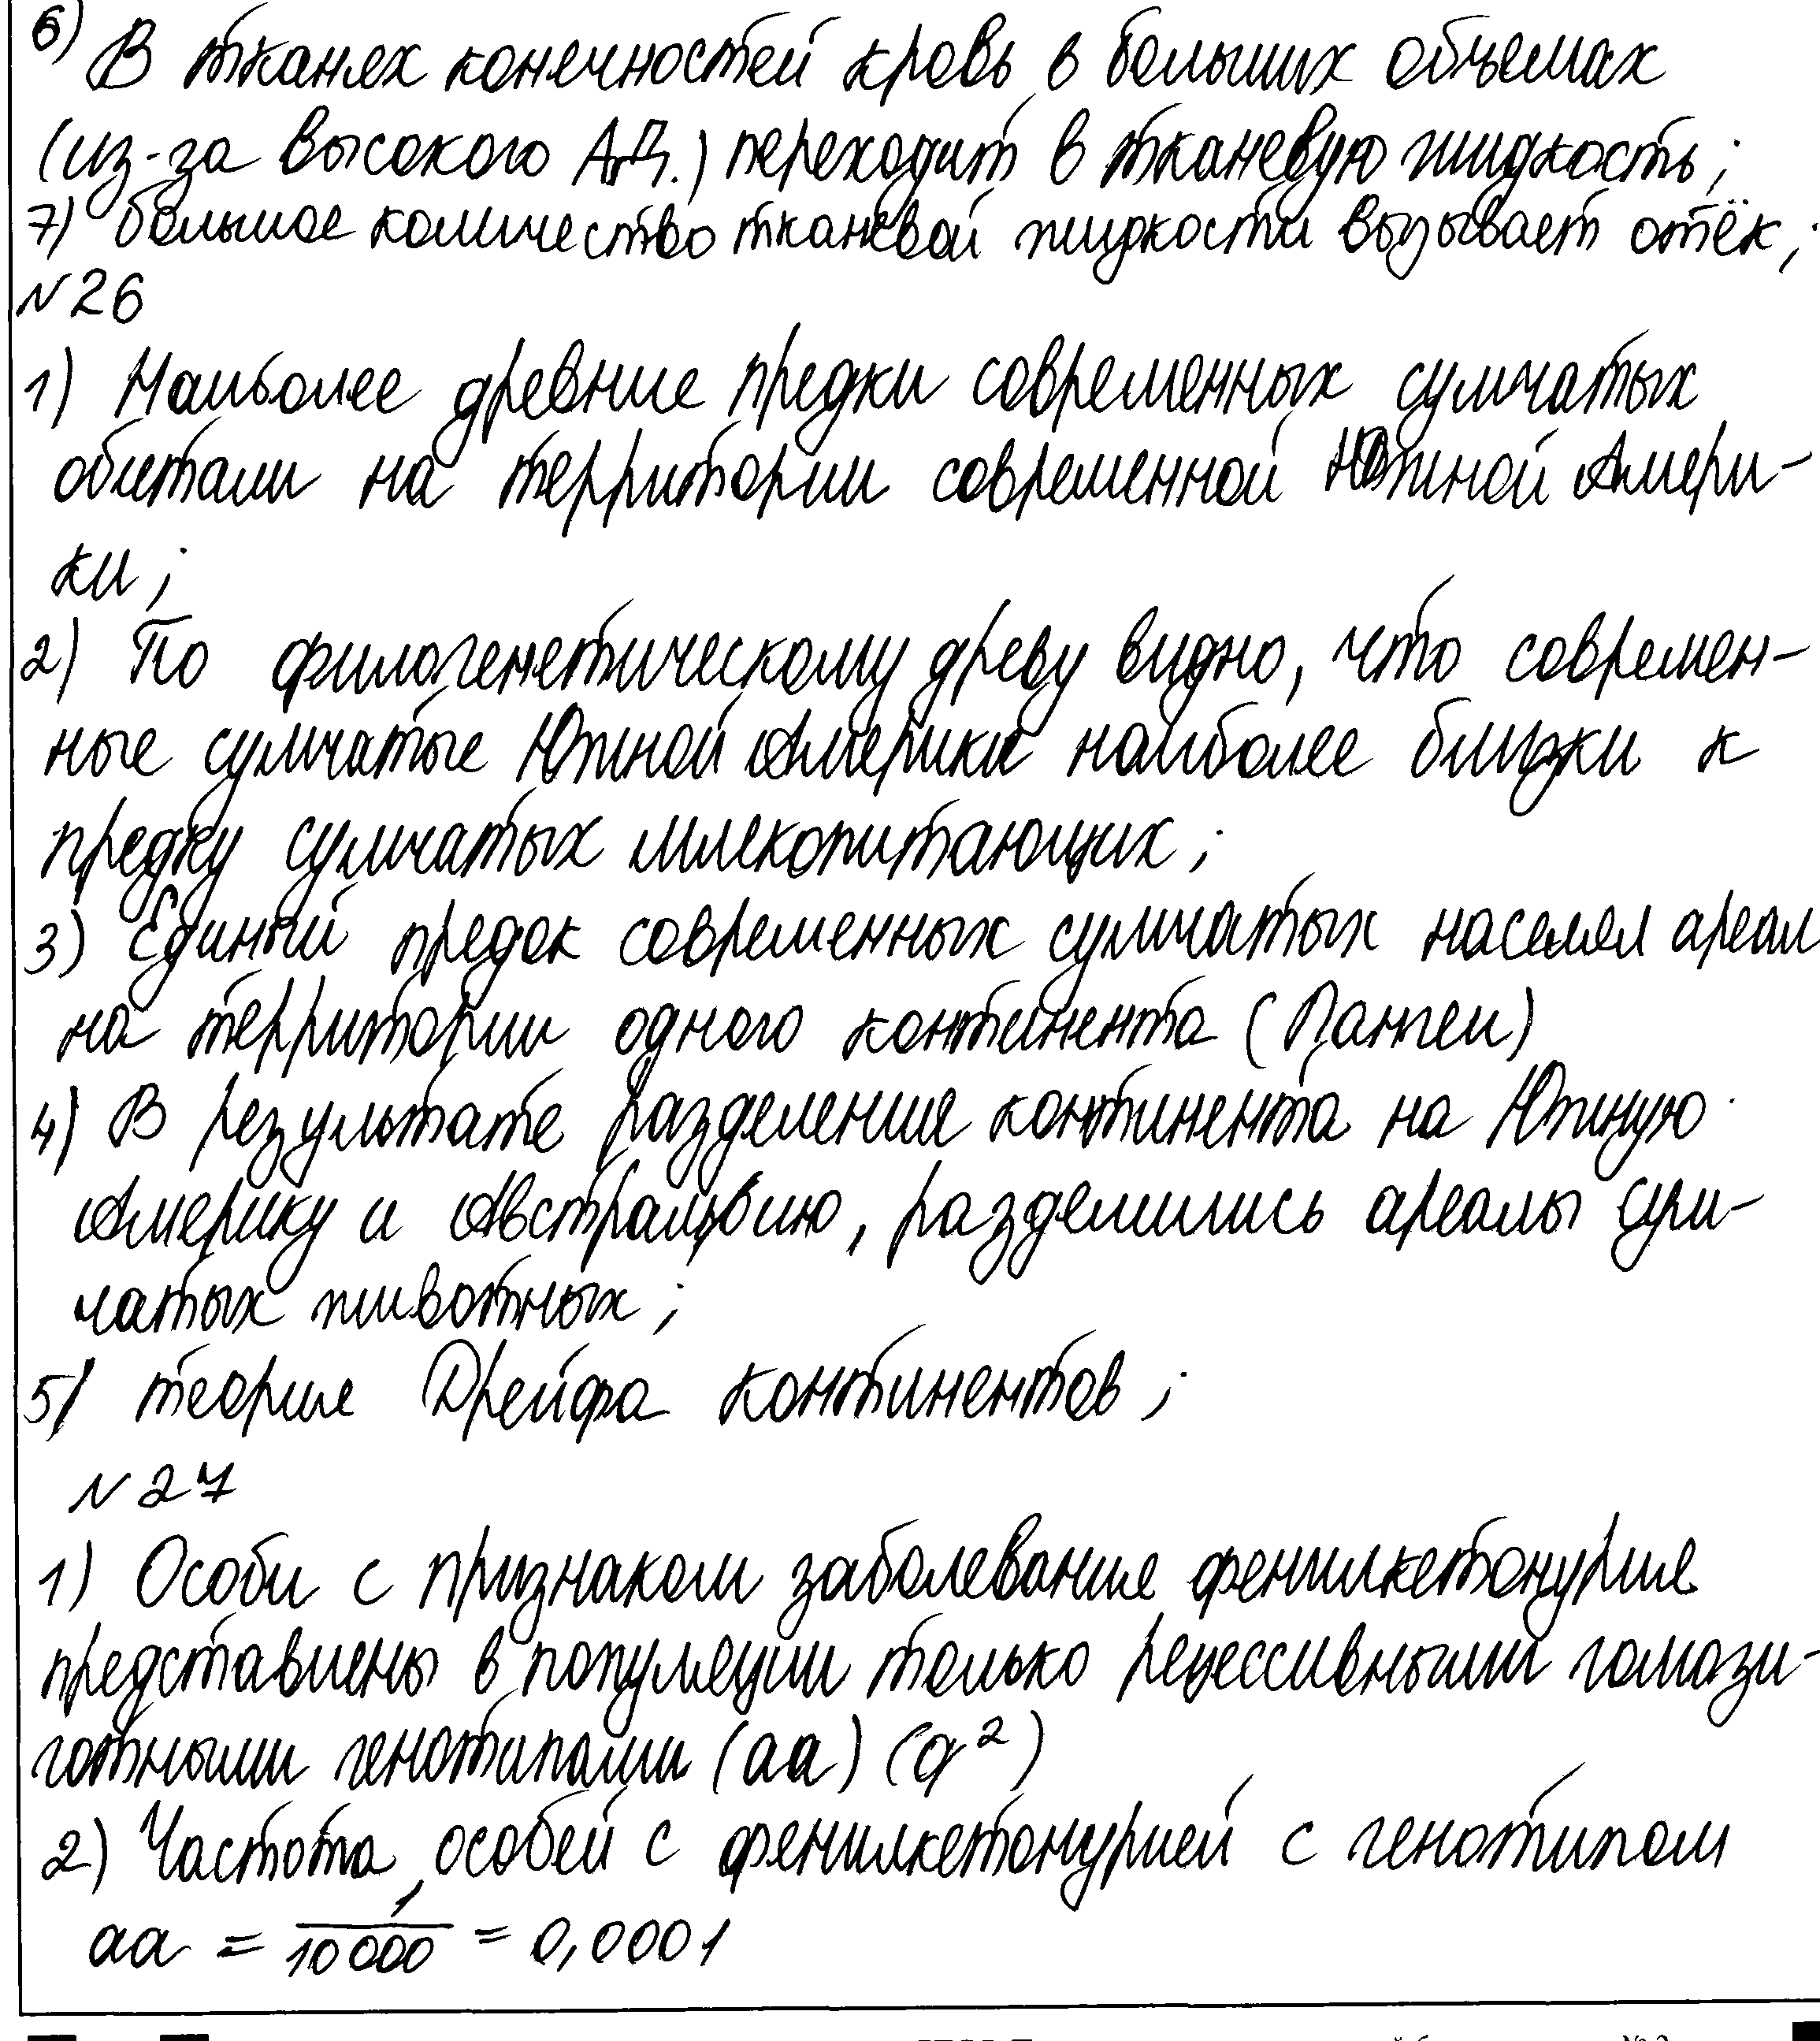 6) В тканях конечностей кровь в больших объемах
(из-за высокого А.Д.) переходит в тканевую жидкость;
7) большое количество тканевой жидкости вызывает отёк;
№26
1) Наиболее древние предки современных сумчатых
обитали на территории современной Южной Амери-
ки;
2) По филогенетическому древу видно, что современ-
ные сумчатые Южной Америки наиболее близки к
предку сумчатых млекопитающих;
3) Единый предок современных сумчатых населял ареал
на территории одного континента (Пангеи)
4) В результате разделения континента на Южную
Америку и Австралию, разделились ареалы сум-
чатых животных;
5) теория Дрейфа континентов;
№27
1) Особи с признаком заболевания фенилкетонурия
представлены в популяции только рецессивными гомози-
готными генотипами (aa) (q²)
2) Частота особей с фенилкетонурией с генотипом
aa = 1/10000 = 0,0001